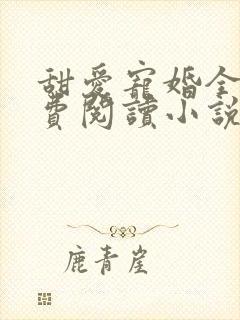 甜愛寵婚全
費閱讀小說
鹿青崖